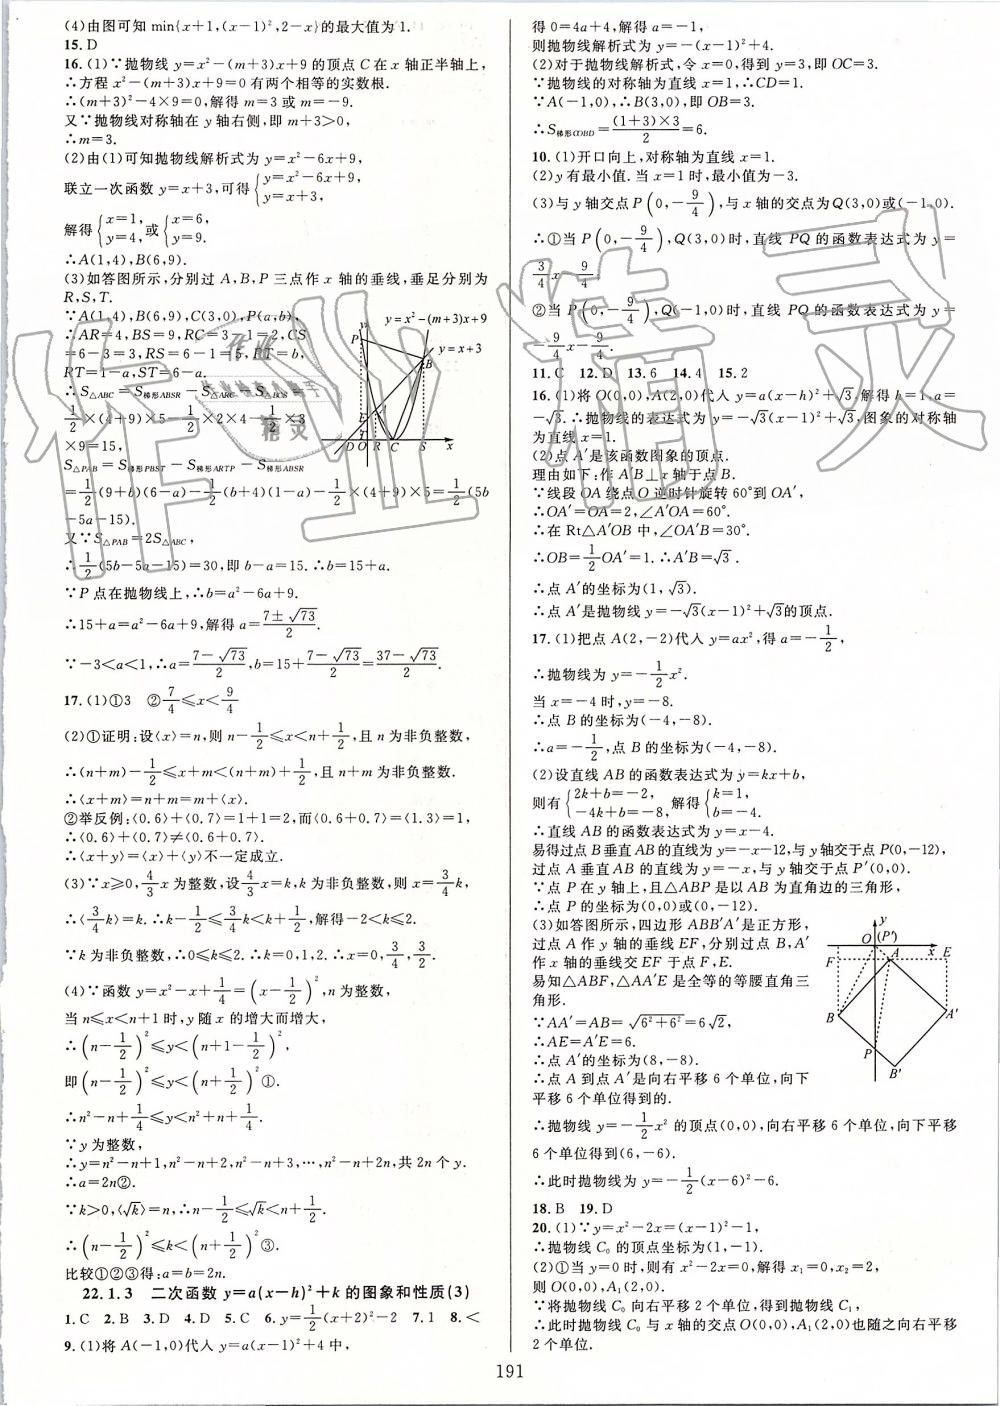 (4)由图可知 min{x+1,(x-1)²,2-x}的最大值为1.
15. D
16. (1)∵抛物线 y=x²-(m+3)x+9 的顶点 C 在 x 轴正半轴上,
∴方程 x²-(m+3)x+9=0 有两个相等的实数根.
∴(m+3)²-4×9=0,解得 m=3 或 m=-9.
又∵抛物线对称轴在 y 轴右侧,即 m+3>0,
∴m=3.
(2)由(1)可知抛物线解析式为 y=x²-6x+9,
联立一次函数 y=x+3,可得{y=x²-6x+9, y=x+3,
解得{x=1, y=4,或{x=6, y=9.
∴A(1,4),B(6,9).
(3)如答图所示,分别过 A,B,P 三点作 x 轴的垂线,垂足分别为
R,S,T.
∵A(1,4),B(6,9),C(3,0),P(a,b),
∴AR=4,BS=9,RC=3-1=2,CS
=6-3=3,RS=6-1=5,PT=b,
RT=1-a,ST=6-a.
∴S△ABC=S梯形ABSR-S△ARC-S△BCS=
1/2×(4+9)×5-1/2×2×4-1/2×3
×9=15,
S△PAB=S梯形PBST-S梯形ARTP-S梯形ABSR
=1/2(9+b)(6-a)-1/2(b+4)(1-a)-1/2×(4+9)×5=1/2(5b
-5a-15).
又∵S△PAB=2S△ABC,
∴1/2(5b-5a-15)=30,即 b-a=15.∴b=15+a.
∵P 点在抛物线上,∴b=a²-6a+9.
∴15+a=a²-6a+9,解得 a=(7±√73)/2.
∵-3<a<1,∴a=(7-√73)/2,b=15+(7-√73)/2=(37-√73)/2.
17. (1)①3 ②7/4≤x<9/4
(2)①证明:设⟨x⟩=n,则 n-1/2≤x<n+1/2,且 n 为非负整数,
∴(n+m)-1/2≤x+m<(n+m)+1/2,且 n+m 为非负整数.
∴⟨x+m⟩=n+m=m+⟨x⟩.
②举反例:⟨0.6⟩+⟨0.7⟩=1+1=2,而⟨0.6+0.7⟩=⟨1.3⟩=1,
∴⟨0.6⟩+⟨0.7⟩≠⟨0.6+0.7⟩.
∴⟨x+y⟩=⟨x⟩+⟨y⟩不一定成立.
(3)∵x≥0,4/3x 为整数,设4/3x=k,k 为非负整数,则 x=3/4k,
∴⟨3/4k⟩=k.∴k-1/2≤3/4k<k+1/2,解得-2<k≤2.
∵k 为非负整数,∴0≤k≤2.∴k=0,1,2.∴x=0,3/4,3/2.
(4)∵函数 y=x²-x+1/4=(x-1/2)²,n 为整数,
当 n≤x<n+1 时,y 随 x 的增大而增大,
∴(n-1/2)²≤y<(n+1-1/2)²,
即(n-1/2)²≤y<(n+1/2)²①.
∴n²-n+1/4≤y<n²+n+1/4.
∵y 为整数,
∴y=n²-n+1,n²-n+2,n²-n+3,…,n²-n+2n,共 2n 个 y.
∴a=2n②.
∵k>0,⟨√k⟩=n,∴n-1/2≤√k<n+1/2,
∴(n-1/2)²≤k<(n+1/2)²③.
比较①②③得:a=b=2n.
22.1.3 二次函数 y=a(x-h)²+k 的图象和性质(3)
1. C 2. B 3. D 4. D 5. C 6. y=1/2(x+2)²-2 7. 1 8. <
9. (1)将 A(-1,0)代入 y=a(x-1)²+4 中,
y=x²-(m+3)x+9
y=x+3
P
B
E
A
D O R C S x
得 0=4a+4,解得 a=-1,
则抛物线解析式为 y=-(x-1)²+4.
(2)对于抛物线解析式,令 x=0,得到 y=3,即 OC=3.
∵抛物线的对称轴为直线 x=1,∴CD=1.
∵A(-1,0),∴B(3,0),即 OB=3.
∴S梯形COBD=(1+3)×3/2=6.
10. (1)开口向上,对称轴为直线 x=1.
(2)y 有最小值.当 x=1 时,最小值为-3.
(3)与 y 轴交点 P(0,-9/4),与 x 轴的交点为 Q(3,0)或(-1,0).
∴①当 P(0,-9/4),Q(3,0)时,直线 PQ 的函数表达式为 y=
3/4x-9/4.
②当 P(0,-9/4),Q(-1,0)时,直线 PQ 的函数表达式为 y=
-9/4x-9/4.
11. C 12. D 13. 6 14. 4 15. 2
16. (1)将 O(0,0),A(2,0)代入 y=a(x-h)²+√3,解得 h=1,a=
-√3.∴抛物线的表达式为 y=-√3(x-1)²+√3,图象的对称轴
为直线 x=1.
(2)点 A′是该函数图象的顶点.
理由如下:作 A′B⊥x 轴于点 B.
∵线段 OA 绕点 O 逆时针旋转 60°到 OA′,
∴OA′=OA=2,∠A′OA=60°.
∴在 Rt△A′OB 中,∠OA′B=30°.
∴OB=1/2OA′=1.∴A′B=√3.
∴点 A′的坐标为(1,√3).
∴点 A′是抛物线 y=-√3(x-1)²+√3的顶点.
17. (1)把点 A(2,-2)代入 y=ax²,得 a=-1/2,
∴抛物线为 y=-1/2x².
当 x=-4 时,y=-8.
∴点 B 的坐标为(-4,-8).
∴a=-1/2,点 B 的坐标为(-4,-8).
(2)设直线 AB 的函数表达式为 y=kx+b,
则有{2k+b=-2, -4k+b=-8, 解得{k=1, b=-4.
∴直线 AB 的函数表达式为 y=x-4.
易得过点 B 垂直 AB 的直线为 y=-x-12,与 y 轴交于点 P(0,-12),
过点 A 垂直 AB 的直线为 y=-x,与 y 轴交于点 P′(0,0).
∵点 P 在 y 轴上,且△ABP 是以 AB 为直角边的三角形,
∴点 P 的坐标为(0,0)或(0,-12).
(3)如答图所示,四边形 ABB′A′是正方形,
过点 A 作 y 轴的垂线 EF,分别过点 B,A′
作 x 轴的垂线交 EF 于点 F,E.
易知△ABF,△AA′E 是全等的等腰直角三
角形.
∵AA′=AB=√6²+6²=6√2,
∴AE=A′E=6.
∴点 A′的坐标为(8,-8).
∴点 A 到点 A′是向右平移 6 个单位,向下
平移 6 个单位得到的.
∴抛物线 y=-1/2x²的顶点(0,0),向右平移 6 个单位,向下平移
6 个单位得到(6,-6).
∴此时抛物线为 y=-1/2(x-6)²-6.
18. B 19. D
20. (1)∵y=x²-2x=(x-1)²-1,
∴抛物线 C₀ 的顶点坐标为(1,-1).
(2)①当 y=0 时,则有 x²-2x=0,解得 x₁=0,x₂=2,
则 O(0,0),A₁(2,0).
∵将抛物线 C₀ 向右平移 2 个单位,得到抛物线 C₁,
∴此时抛物线 C₀ 与 x 轴的交点 O(0,0),A₁(2,0)也随之向右平移
2 个单位.
y
O (P′) x
F A E
B A′
P
B′
191
作业精灵